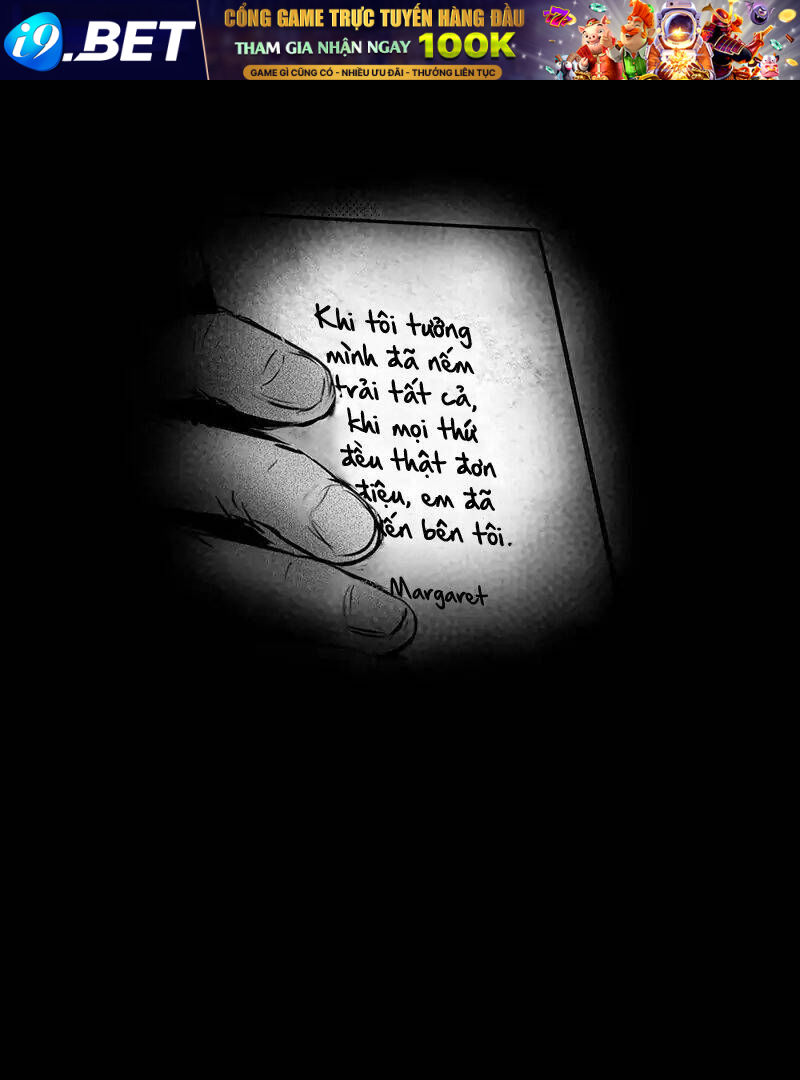 i9.BET
CỔNG GAME TRỰC TUYẾN HÀNG ĐẦU
THAM GIA NHẬN NGAY 100K
GAME GÌ CŨNG CÓ - NHIỀU ƯU ĐÃI - THƯỞNG LIÊN TỤC
Khi tôi tưởng
mình đã nếm
trải tất cả,
khi mọi thứ
đều thật đơn
điệu, em đã
đến bên tôi.
Margaret